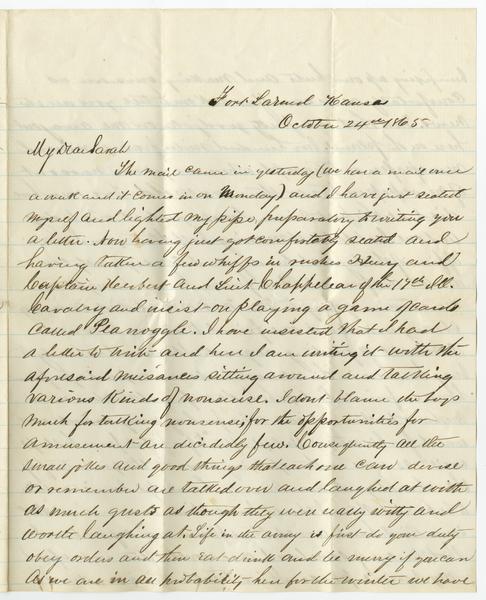 Fort Larned Kansas
October 24th 1865
My Dear Sarah
The mail came in yesterday (We have a mail once
a week and it comes in on Monday) and I have just seated
myself and lighted my pipe, preparatory to writing you
a letter. Now having just got comfortably seated and
having taken a few whiffs in rushes Henry and
Captain Herbert and Lieut Chappelear of the 17th Ill.
Cavalry and insist on playing a game of cards
called Peanoggle. I have insisted that I had
a letter to write and here I am writing it with the
aforesaid nuisances sitting around and talking
various kinds of nonsense. I dont blame the boys
much for talking nonsense, for the opportunities for
amusement are decidedly few. Consequently all the
small jokes and good things that each one can devise
or remember are talked over and laughed at with
as much gusto as though they were really witty and
worth laughing at. Life in the army is first do your duty
obey orders and then eat drink and be merry if you can
As we are in all probability here for the winter we have